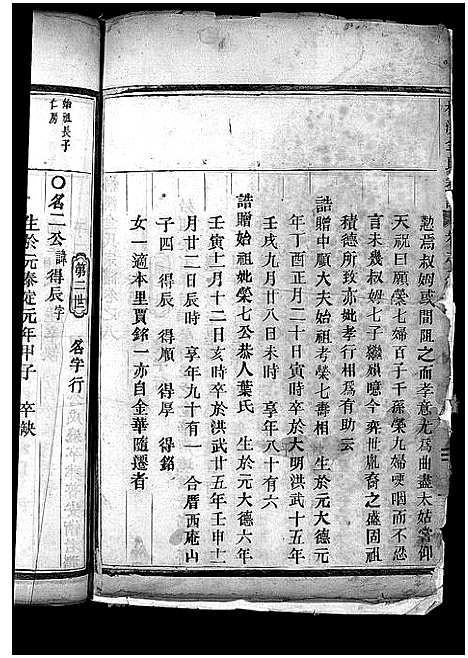 懃焉叔姆或間阻之而孝意尤爲曲盡太姑嘗仰
天祝曰願榮七婦百子千孫榮九婦哽咽而不悉
言未幾叔姆七子繼殞噫今奕世胤裔之盛固祖
積德所致亦妣孝行相爲有助云
誥贈中順大夫始祖考榮七壽相　生於元大德元
年丁酉正月二十日寅時卒於大明洪武十五年
壬戌九月二十八日未時　享年八十有六
誥贈始祖妣榮七公恭人葉氏　生於元大德六年
壬寅十一月十二日亥時卒於洪武廿五年壬申十一
月廿二日辰時　享年九十有一　合厝西庵山
子四　得辰　得順　得厚　得銘
女一適本里賈銘一亦自金華隨遷者
第二世
名字行
始祖長子
仁房
○名二公諱得辰字
生於元泰定元年甲子　卒缺